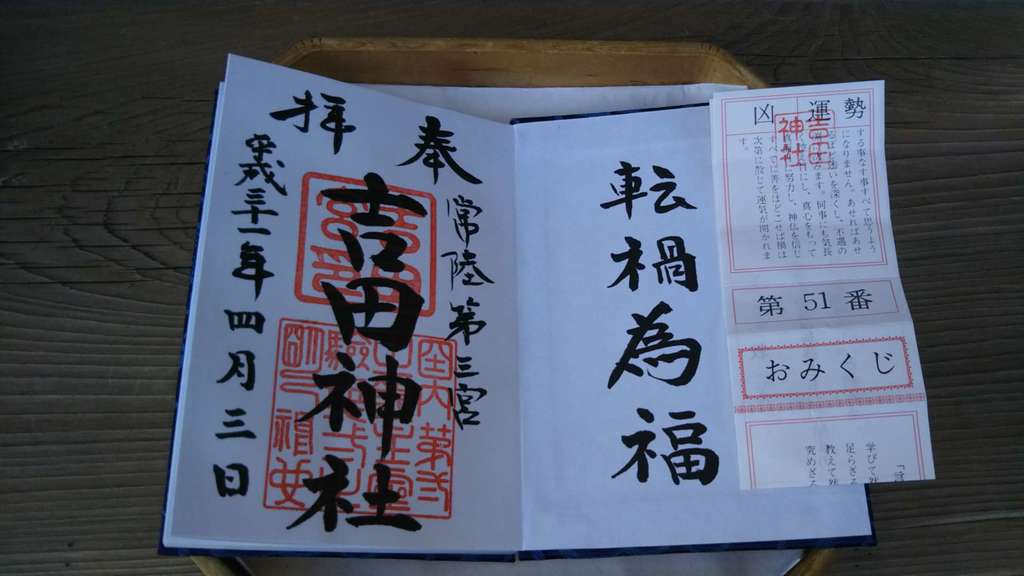 転禍為福
奉
拝
常陸第三宮
吉田神社
平成三十一年四月三日
運勢
凶
吉田
神社
する事なす事すべて思うよう
になりません。あせればあせ
迷いを深くし、不遇の
ます。何事にも気長
にし、真心をもって
に努力し、神仏を信じ
すべてに善をほどこせば禍は
次第に散じて運気が開かれま
す。
第51番
おみくじ
学びて然
足らざ
教えて然
究めざる